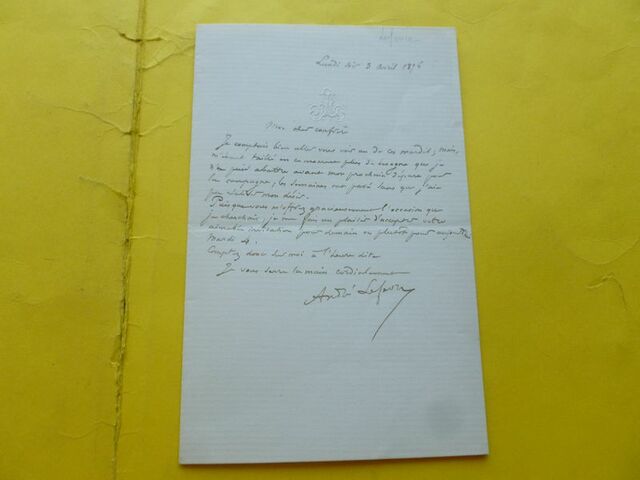 Lundi soir 3 avril 1876
Mon cher confrère
Je comptais bien aller vous voir un de ces mardis; mais,
m'étant taillé en ce moment plus de besogne que je
n'en puis abattre avant mon prochain départ pour
la campagne, les semaines ont passé sans que j'aie
pu réaliser mon désir.
Puisque vous m'offrez gracieusement l'occasion que
je cherchais, je me fais un plaisir d'accepter votre
aimable invitation pour demain ou plutôt pour aujourd'hui
Mardi 4.
Comptez donc sur moi à l'heure dite
Je vous serre la main cordialement
André Lefèvre